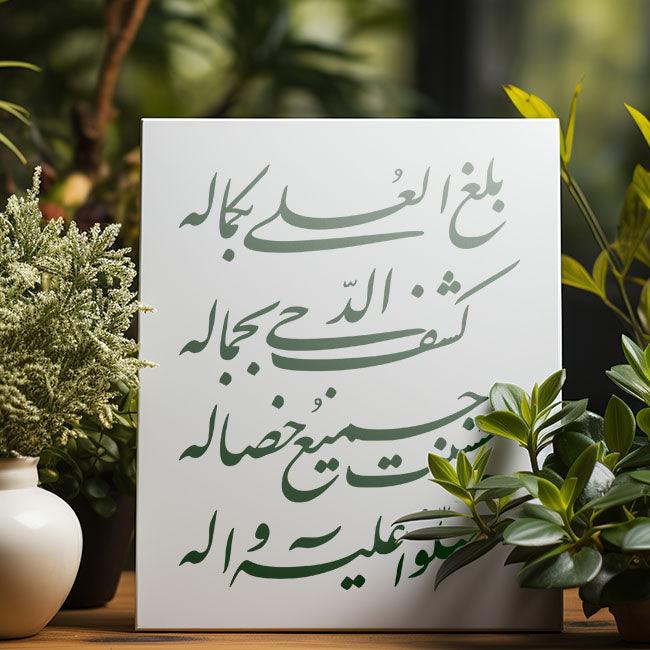 بلغ العُلے بکماله
کشف الدّجے بجماله
حسنت جمیعُ خصاله
صلّوا علیه وآله